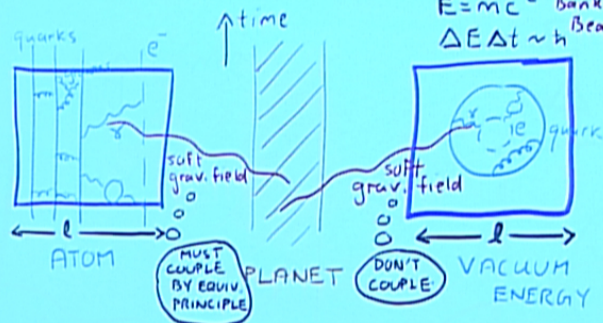 E=mc² Bank
ΔEΔt~ħ Bea
time
quarks
e⁻
γ
soft
grav. field
soft
grav. field
γ
e
quark
l
ATOM
MUST
COUPLE
BY EQUIV.
PRINCIPLE
PLANET
DON'T
COUPLE
l
VACUUM
ENERGY